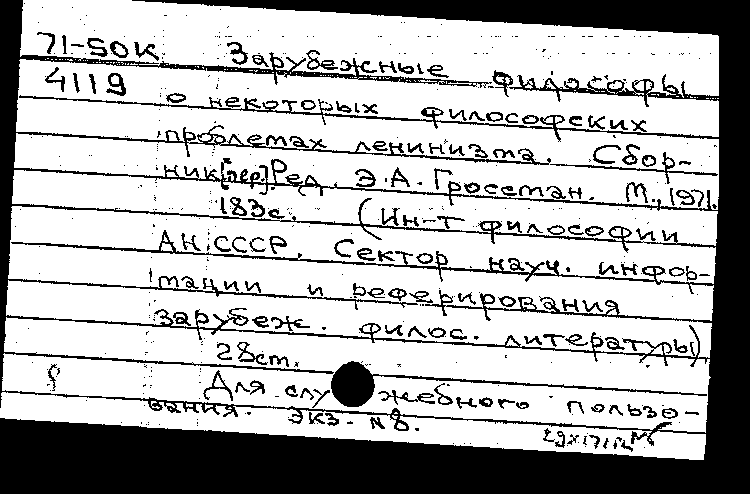 71-50К Зарубежные философы
4119 о некоторых философских
проблемах ленинизма. Сбор-
ник [пер]. Ред. Э.А. Гроссман. М., 1971.
183с. (Ин-т философии
АН СССР. Сектор науч. инфор-
мации и реферирования
зарубеж. филос. литературы)
28cm.
8 Для служебного пользо-
вания. Экз. №8.